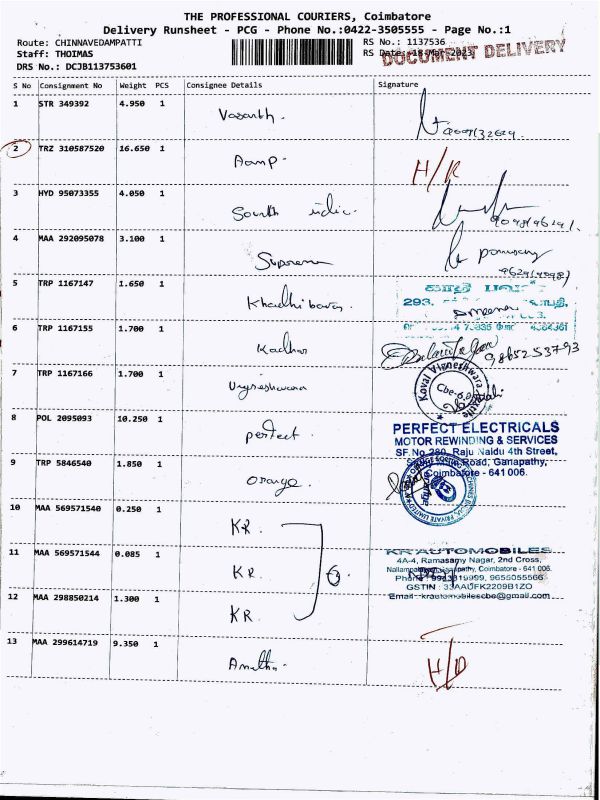 THE PROFESSIONAL COURIERS, Coimbatore
Delivery Runsheet - PCG - Phone No.:0422-3505555 - Page No.:1
Route: CHINNAVEDAMPATTI
RS No.: 1137536
Staff: THOIMAS
RS Date: 18-Mar-2023
DOCUMENT DELIVERY
DRS No.: DCJB113753601
S No Consignment No Weight PCS Consignee Details Signature
1 STR 349392 4.950 1 Vasanth.
2 TRZ 310587520 16.650 1 H/R
3 HYD 95073355 4.050 1 South india.
4 MAA 292095078 3.100 1 Supreme
5 TRP 1167147 1.650 1
293.
6 TRP 1167155 1.700 1 Kadhar
9865253793
7 TRP 1167166 1.700 1 Vigneshwara
Koval Vigneshwara
Cbe-6.
8 POL 2095093 10.250 1 perfect.
PERFECT ELECTRICALS
MOTOR REWINDING & SERVICES
SF.No 280, Raju Naidu 4th Street,
Road, Ganapathy,
Coimbatore - 641 006.
9 TRP 5846540 1.850 1 Orange.
10 MAA 569571540 0.250 1 KR.
11 MAA 569571544 0.085 1 KR.
KR AUTOMOBILES
4A-4, Ramasamy Nagar, 2nd Cross,
Coimbatore - 641 006.
9655055566
GSTIN : 33AAUFK2209B1ZO
Email: krautomobilescbe@gmail.com
12 MAA 298850214 1.300 1 KR.
13 MAA 299614719 9.350 1 H/D